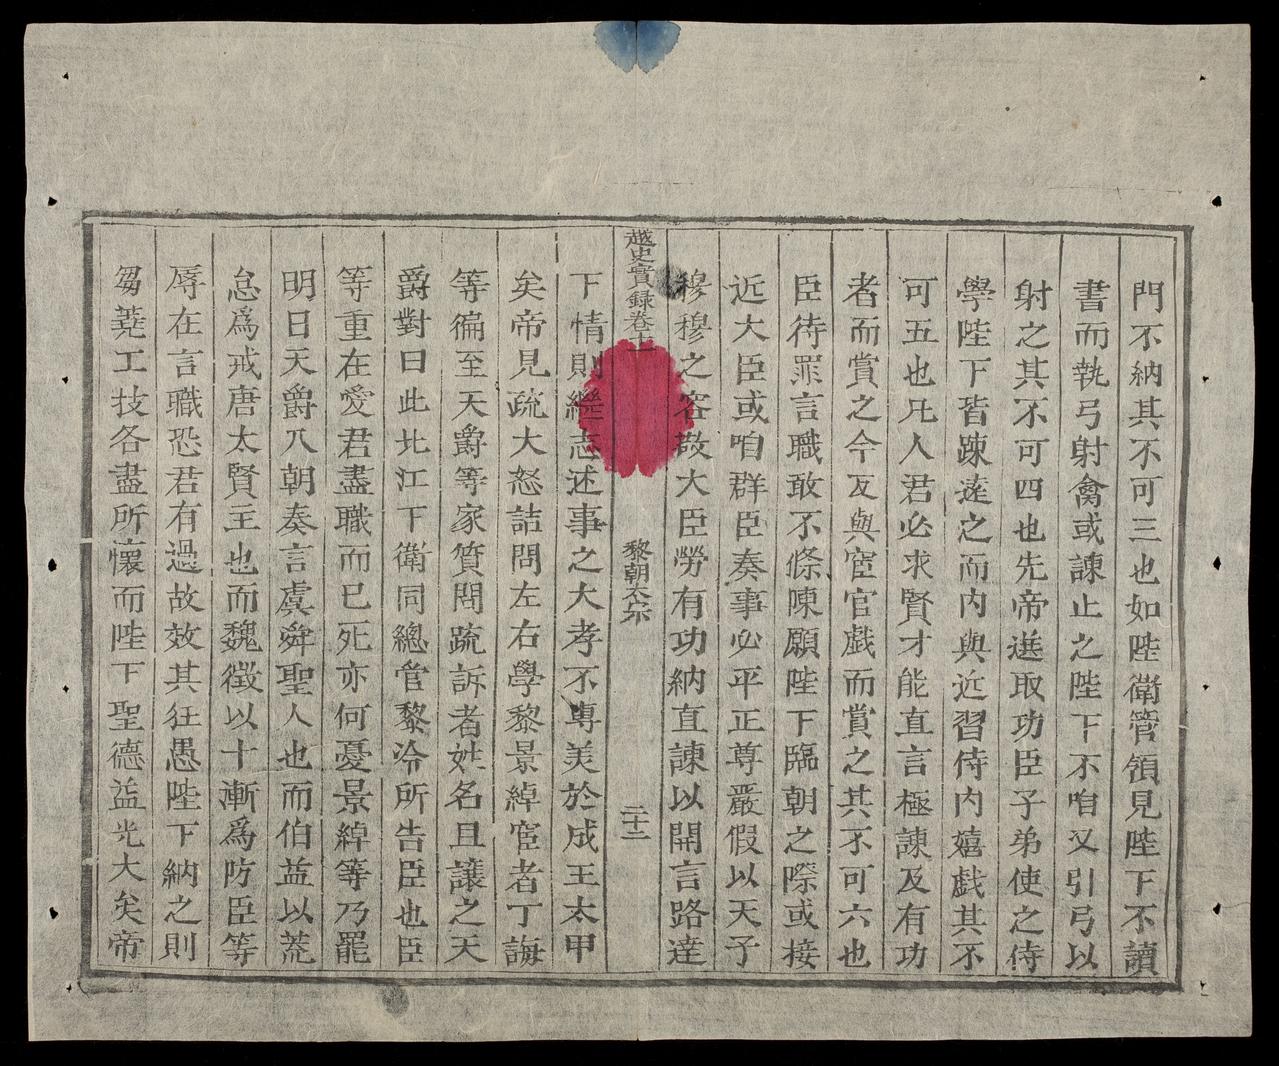 門不納其不可三也如陛衛管領見陛下不讀
書而執弓射禽或諫止之陛下不咱又引弓以
射之其不可四也先帝進取功臣子弟使之侍
學陛下皆踈遠之而內與近習侍內嬉戲其不
可五也凡人君必求賢才能直言極諫及有功
者而賞之今反與宦官戲而賞之其不可六也
臣待罪言職敢不條陳願陛下臨朝之際或接
近大臣或咱群臣奏事必平正尊嚴假以天子
穆穆之容敬大臣勞有功納直諫以開言路達
越史實録卷十一
黎朝太宗
二十二
下情則繼志述事之大孝不專美於成王太甲
矣帝見疏大怒詰問左右學黎景綽宦者丁誨
等徧至天爵等家質問疏訴者姓名且讓之天
爵對曰此北江下衛同總管黎冷所告臣也臣
等重在愛君盡職而已死亦何憂景綽等乃罷
明日天爵入朝奏言虞舜聖人也而伯益以荒
怠爲戒唐太賢主也而魏徵以十漸爲防臣等
辱在言職恐君有過故效其狂愚陛下納之則
芻蕘工技各盡所懷而陛下聖德益光大矣帝